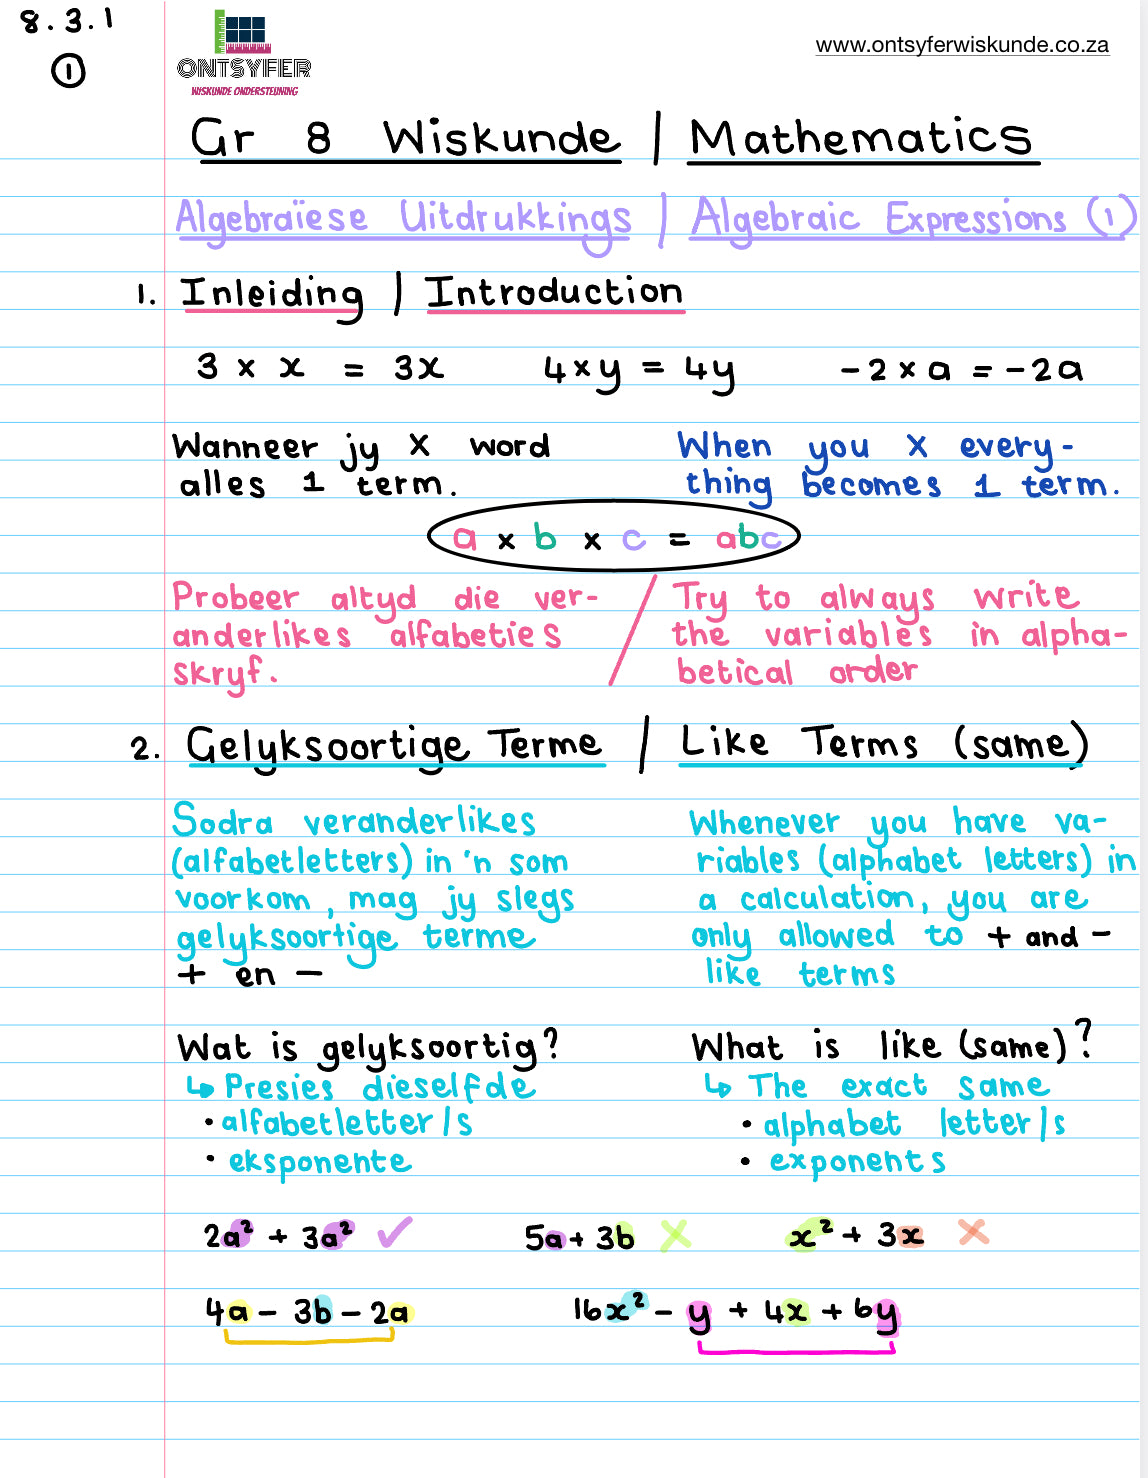 8.3.1
1
ONTSYFER
WISKUNDE ONDERSTEUNING
www.ontsyferwiskunde.co.za
Gr 8 Wiskunde | Mathematics
Algebraïese Uitdrukkings | Algebraic Expressions (1)
1. Inleiding | Introduction
3 × x = 3x 4×y = 4y -2×a = -2a
Wanneer jy X word
alles 1 term.
When you X every-
thing becomes 1 term.
a × b × c = abc
Probeer altyd die ver-
anderlikes alfabeties
skryf.
/
Try to always write
the variables in alpha-
betical order
2. Gelyksoortige Terme | Like Terms (same)
Sodra veranderlikes
(alfabetletters) in 'n som
voorkom, mag jy slegs
gelyksoortige terme
+ en -
Whenever you have va-
riables (alphabet letters) in
a calculation, you are
only allowed to + and -
like terms
Wat is gelyksoortig?
↳ Presies dieselfde
• alfabetletter/s
• eksponente
What is like (same)?
↳ The exact same
• alphabet letter/s
• exponents
2a² + 3a² ✓ 5a + 3b ✗ x² + 3x ✗
4a - 3b - 2a 16x² - y + 4x + 6y